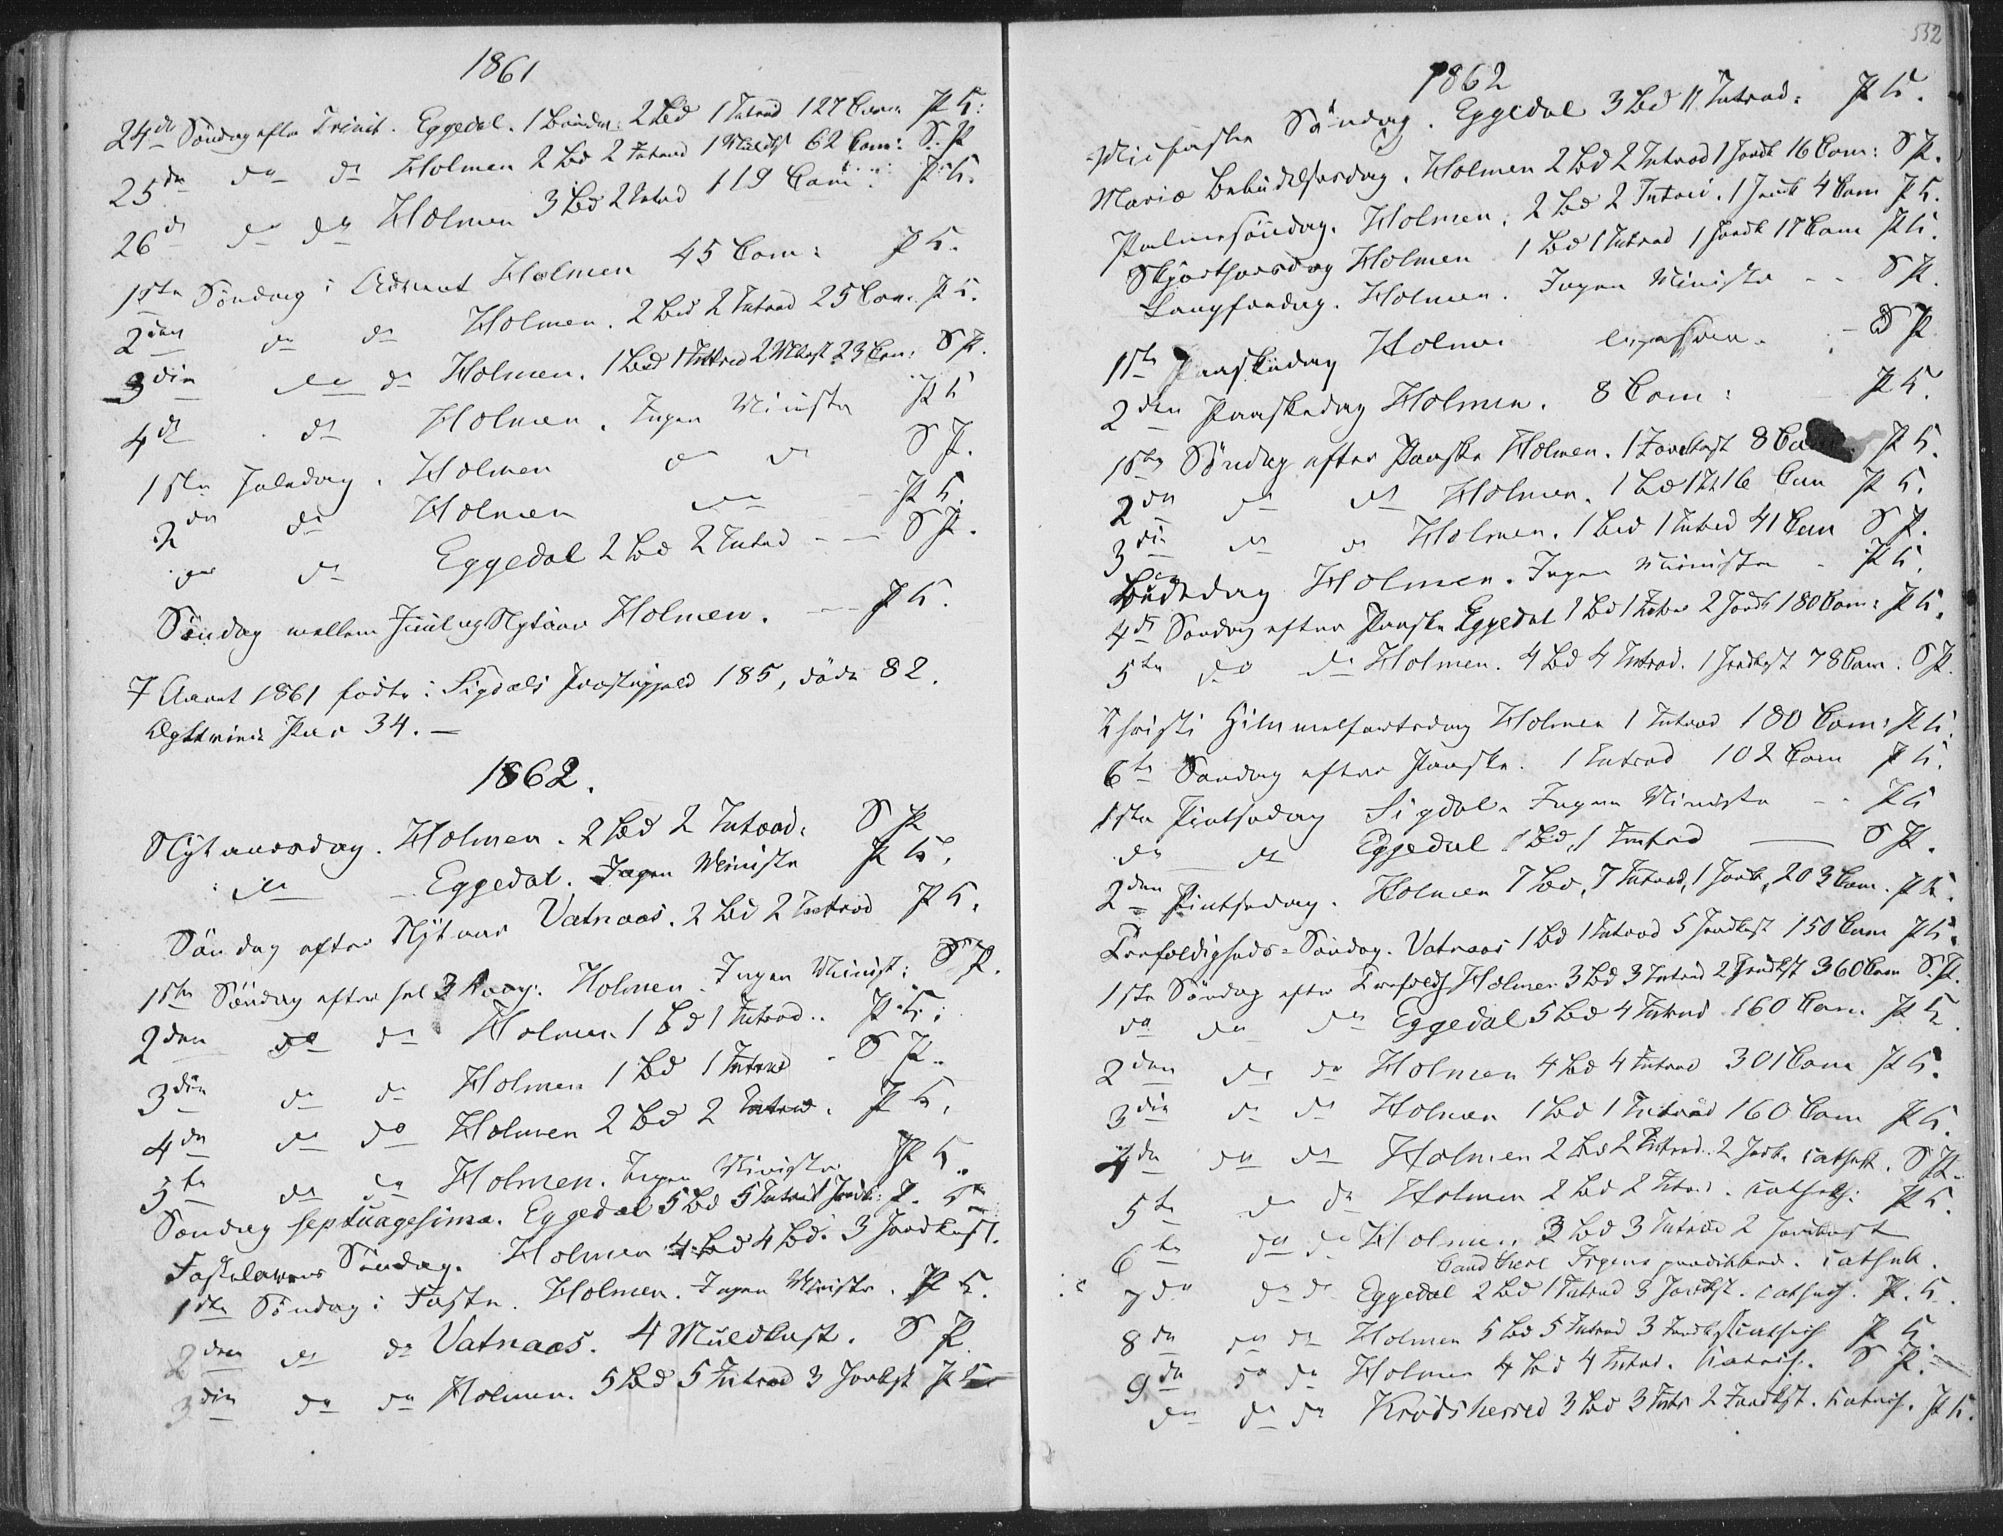 1861
24de Søndag efter Trinit. Eggedal. 1 2 Bd 1 Introd 127 Com: P K:
25de do do Holmen 2 Bd 2 Introd 1 Muldk 62 Com: S. P
26de do do Holmen 3 Bd 2 Introd 119 Com: P K.
1ste Søndag i Advent Holmen 45 Com: P K.
2den do do Holmen. 2 Bd 2 Introd 25 Com. P K.
3die do do Holmen. 1 Bd 1 Introd 2 Mkast 23 Com: S P.
4de do Holmen. Ingen Ministr P K
1ste Juledag. Holmen do do S P.
2den do Holmen do - P K.
do Eggedal 2 Bd 2 Introd - - S P.
Søndag mellem Juul og Nytaar Holmen. - - P K.
I Aaret 1861 fødte i Sigdals Præstegjeld 185, døde 82.
Ægteviede Par 34. -
1862.
Nytaarsdag. Holmen. 2 Bd 2 Introd: S P
do - Eggedal. Ingen Ministr P K.
Søndag efter Nytaar Vatnaas. 2 Bd 2 Introd P K.
1ste Søndag efter hel 3 Kong: Holmen. Ingen Minist: S P.
2den do do Holmen 1 Bd 1 Introd.. P K:
3die do do Holmen 1 Bd 1 Introd - S P.
4de do do Holmen 2 Bd 2 Introd. P K.
5te do do Holmen. Ingen Ministr P K.
Søndag septuagesima. Eggedal 5 Bd 5 Introd 1 Jordk: P. K
Fastelavens Søndag. Holmen 4 Bd 4 Bd. 3 Jordkast.
1ste Søndag i Faste. Holmen. Ingen Ministr. P K.
2den do do Vatnaas. 4 Muldkast. S P.
3die do do Holmen. 5 Bd 5 Introd 3 Jordkst P K
532
1862
Midfaste Søndag. Eggedal 3 Bd 11 Introd: P K.
Mariæ Bebudelsesdag. Holmen 2 Bd 2 Introd 1 Jordk 16 Com: S P.
Palmesøndag. Holmen. 2 Bd 2 Introd. 1 Jordk 4 Com P K.
Skjærthorsdag Holmen 1 Bd 1 Introd 1 Jordk 17 Com P K.
Langfredag. Holmen. Ingen Ministr - - S P.
1ste Paaskedag Holmen - S P
2den Paaskedag Holmen. 8 Com: P K.
1ste Søndag efter Paaske Holmen. 1 Jordkast 8 Com P K.
2den do do Holmen. 1 Bd 1 16 Com P K.
3die do do Holmen. 1 Bd 1 Introd 41 Com S P.
Bededag Holmen. Ingen Ministr - P K.
4de Søndag efter Paaske Eggedal 1 Bd 1 Introd 2 Jordk 180 Com: P K.
5te do do Holmen. 4 Bd 4 Introd. 1 Jordkst 78 Com. S P.
Christi Himmelfartsdag Holmen 1 Introd 180 Com: P K.
6te Søndag efter Paaske. 1 Introd 102 Com P K.
1ste Pintsedag Sigdal. Ingen Ministr - - P K
do do Eggedal 1 Bd, 1 Introd - S P.
2den Pintsedag. Holmen 7 Bd, 7 Introd, 1 Jordk, 203 Com. P K.
Trefoldigheds-Søndag. Vatnaas 1 Bd 1 Introd 5 Jordkst 150 Com P K.
1ste Søndag efter Trefoldgh Holmen 3 Bd 3 Introd 2 Jordkst 360 Com S. P.
do do do Eggedal 5 Bd 4 Introd 160 Com P K.
2den do do Holmen 4 Bd 4 Introd 301 Com P K.
3die do do Holmen 1 Bd 1 Introd 160 Com P K.
4de do do Holmen 2 Bd 2 Introd. 2 Jordk. Cathek. S P.
5te do do Holmen 2 Bd 2 Introd. Cathek: P K.
6te do do Holmen 3 Bd 3 Introd 2 Jordkast
Cand theol prædikked. Cathek.
7de do do Eggedal 2 Bd 1 Introd 3 Jordkst. Cathech. P. K.
8de do do Holmen 5 Bd 5 Introd 3 Jordkst Cathech P K.
9de do do Holmen 4 Bd 4 Introd. Katech. S P.
do do do Krødsherred 3 Bd 3 Intr 2 Jordkst. Katech. P K.